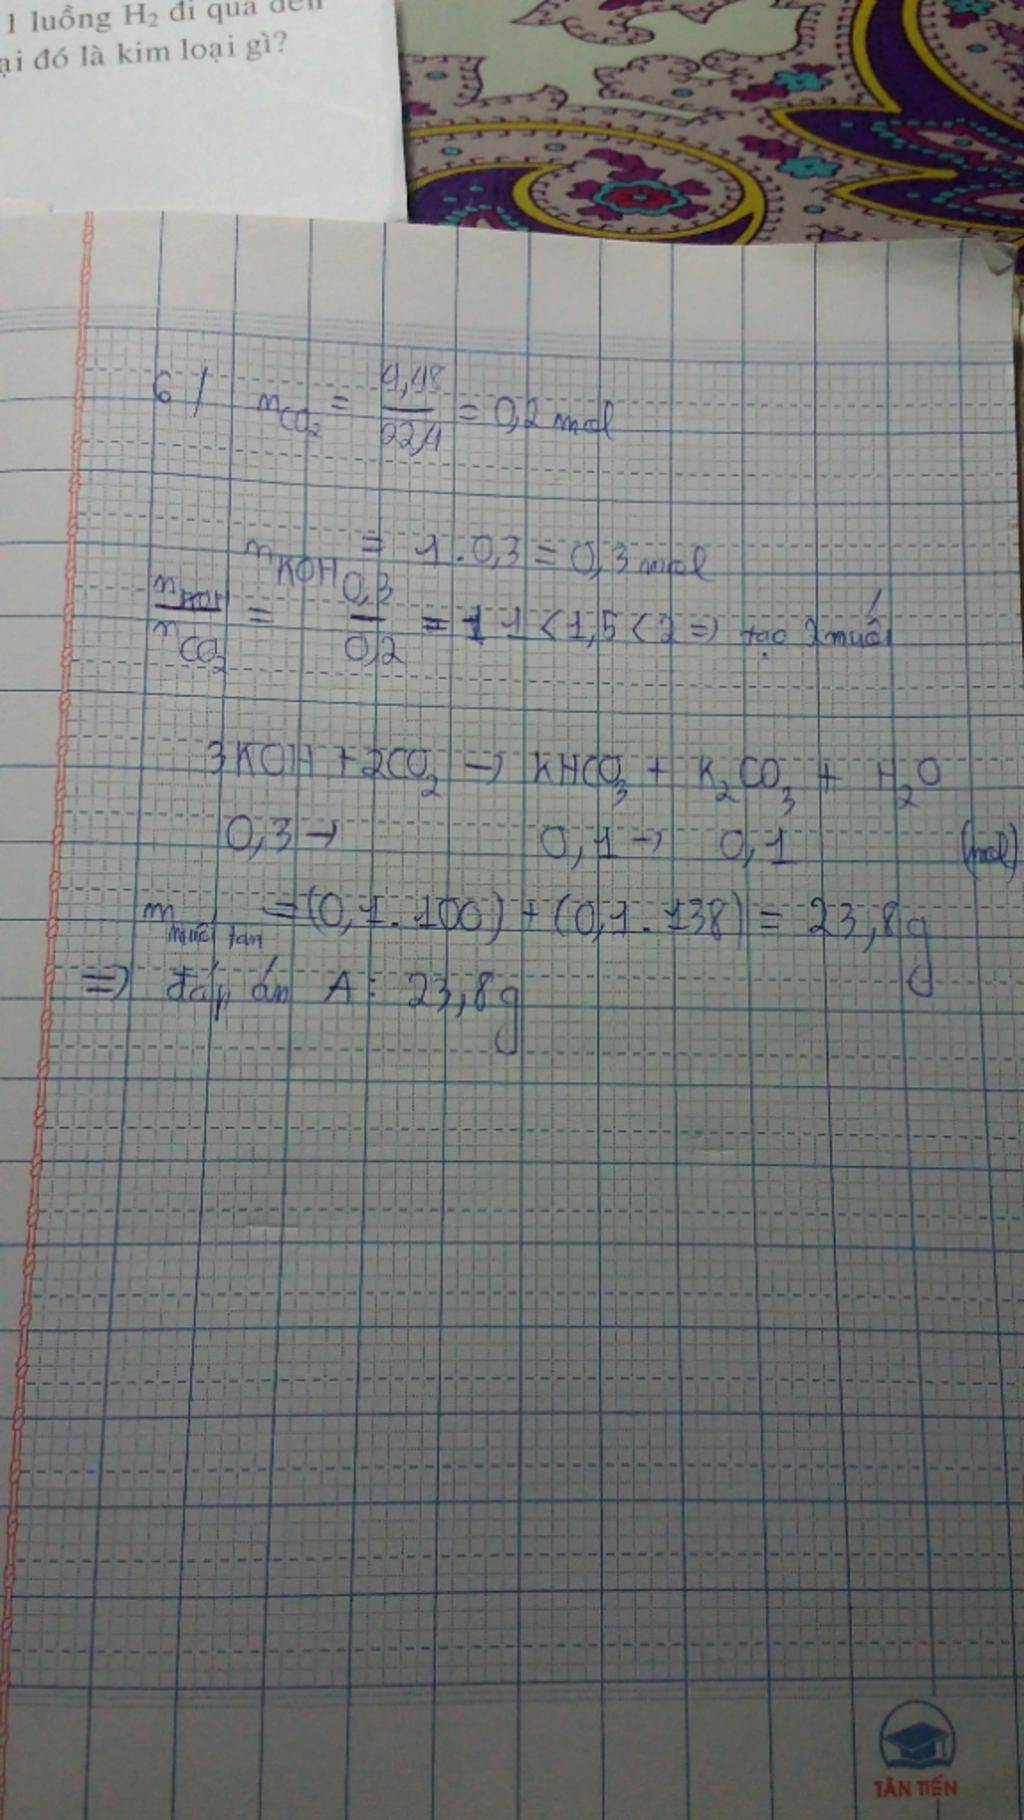 1 luồng H₂ đi qua đến
ại đó là kim loại gì?
6/ nCO₂ = 4,48/22,4 = 0,2 mol
nKOH = 1.0,3 = 0,3 mol
nKOH/nCO₂ = 0,3/0,2 = 1 1 < 1,5 < 2 => tạo 2 muối
3KOH + 2CO₂ → KHCO₃ + K₂CO₃ + H₂O
0,3 → 0,1 → 0,1 (mol)
m muối tan = (0,1.100) + (0,1.138) = 23,8g
=> đáp án A: 23,8g
TÂN TIẾN